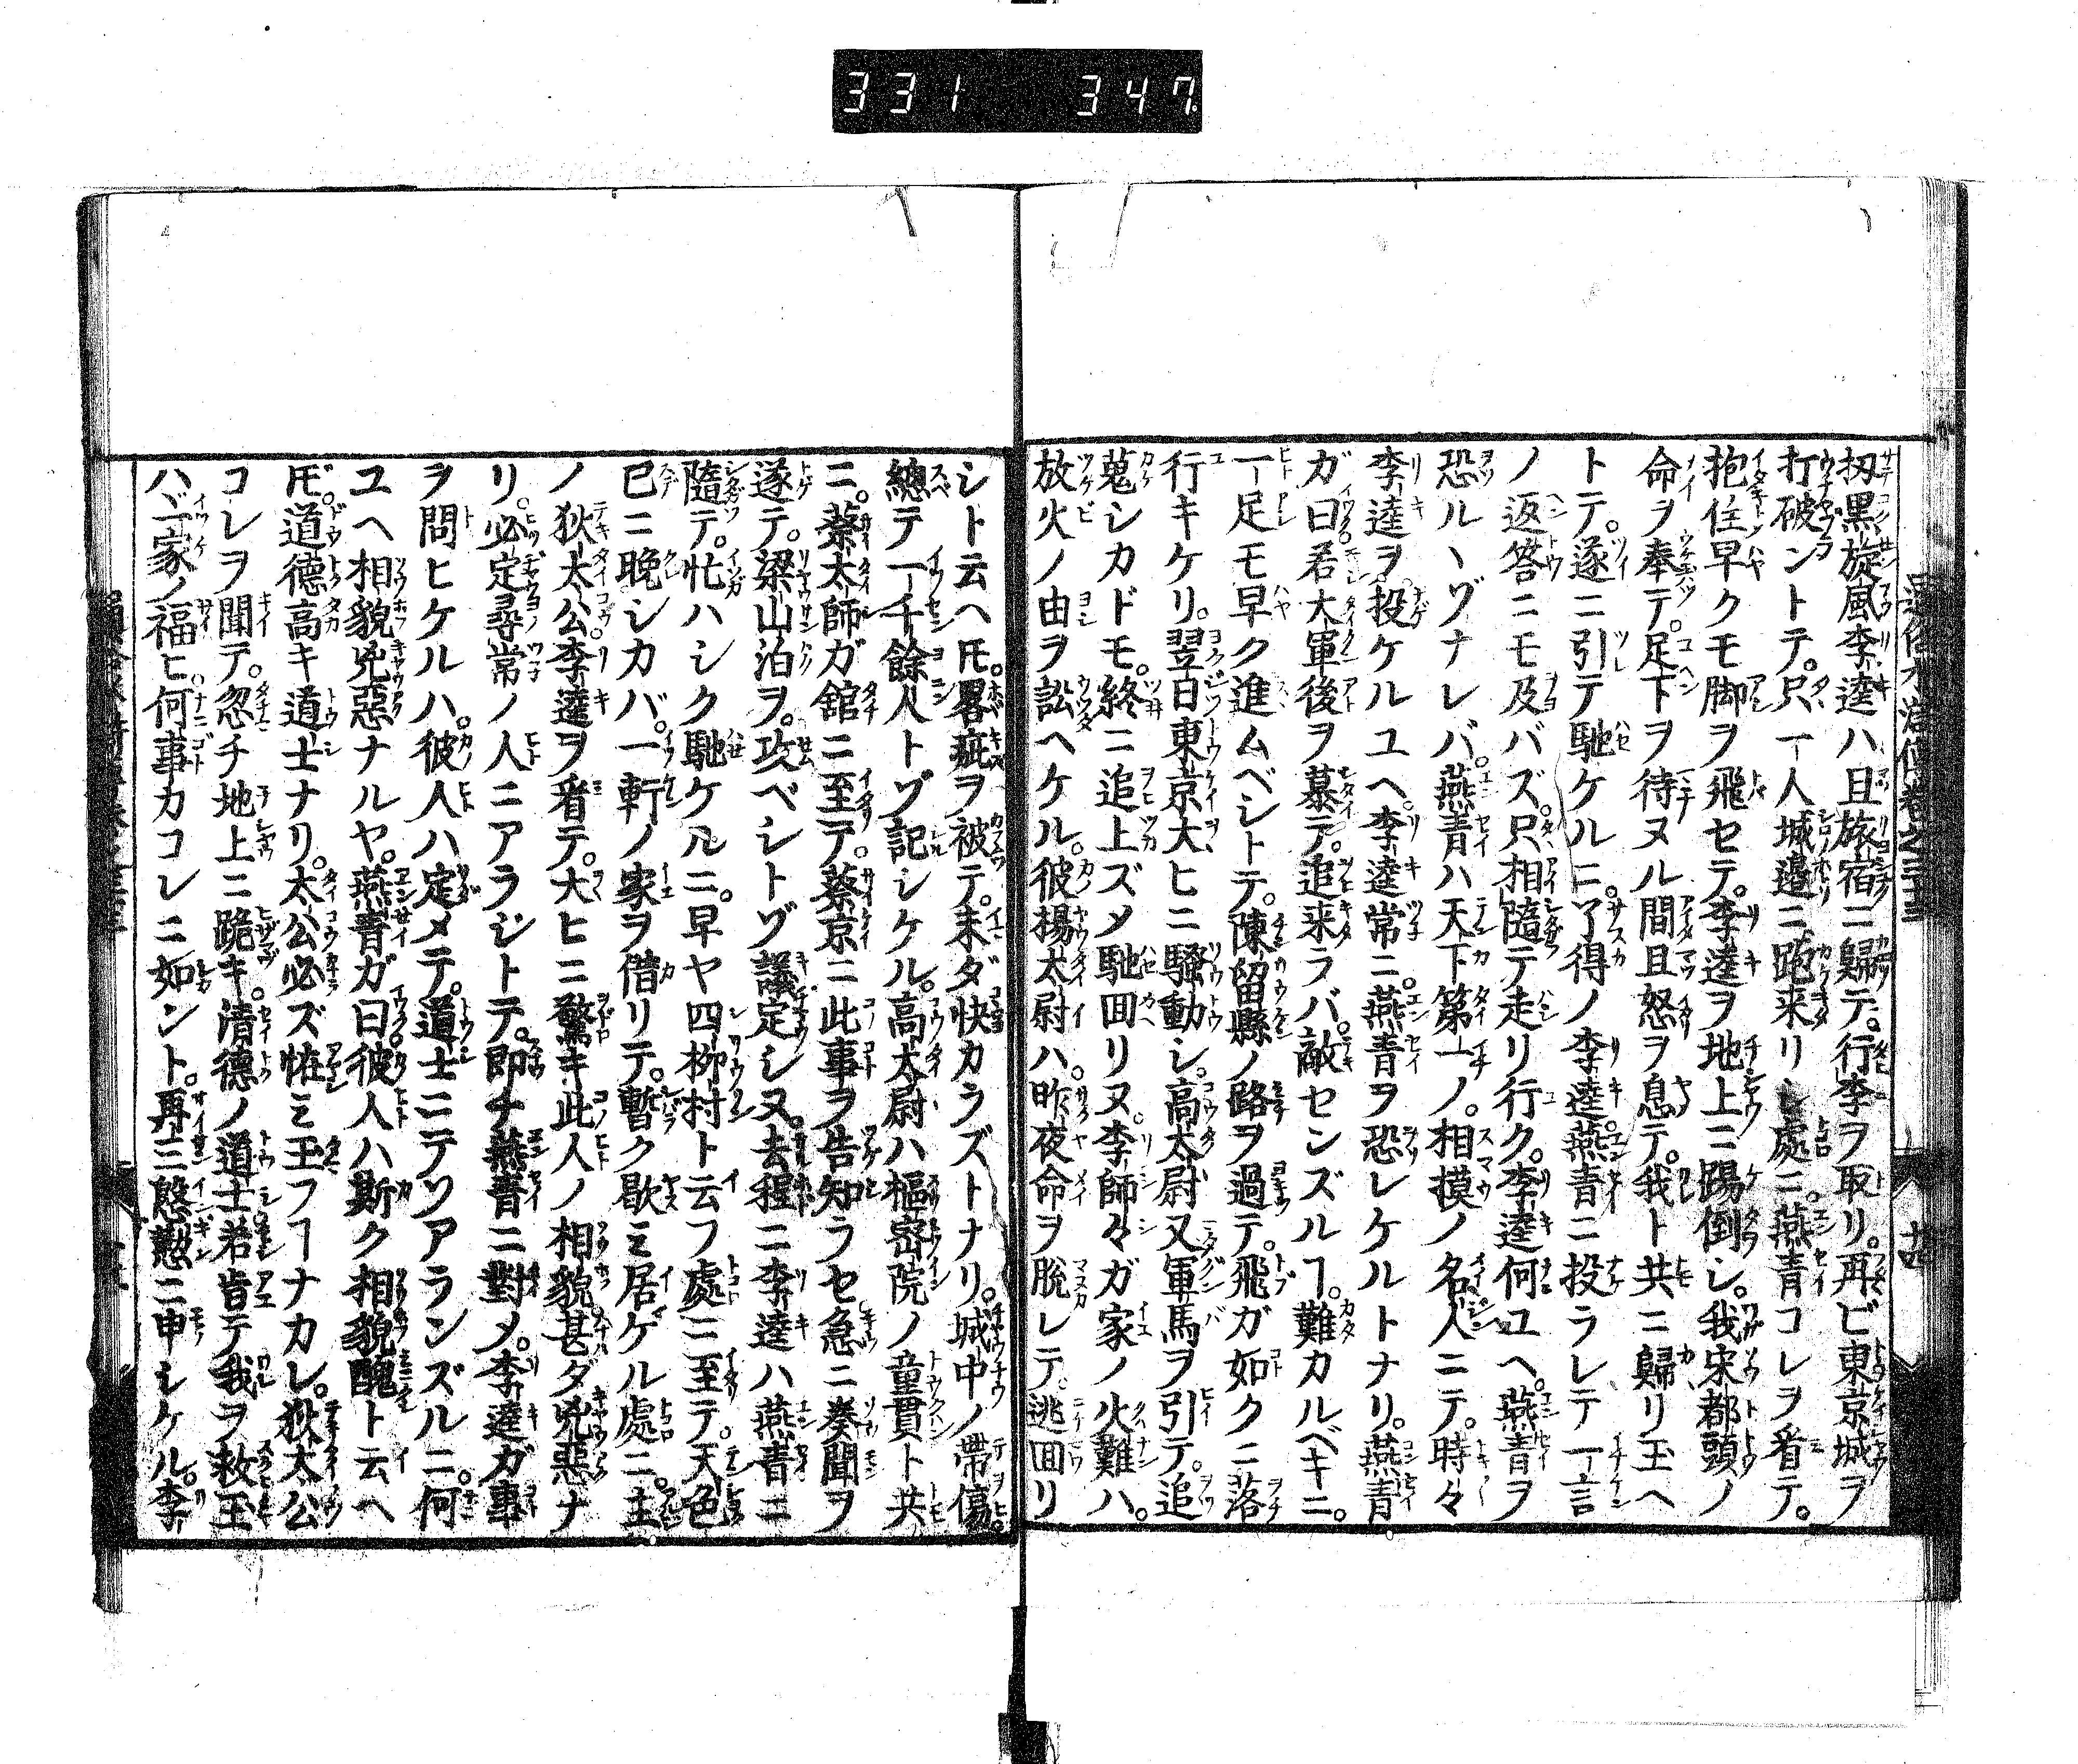 331 347
扨黒旋風李逵ハ且旅宿ニ歸テ。行李ヲ取リ。再ビ東京城ヲ
打破ントテ。只一人城邉ニ跑来リシ處ニ。燕青コレヲ看テ。
抱住早クモ脚ヲ飛セテ。李逵ヲ地上ニ踢倒シ。我宋都頭ノ
命ヲ奉テ。足下ヲ待ヌル間且怒ヲ息テ。我ト共ニ歸リ玉ヘ
トテ。遂ニ引テ馳ケルニ。了得ノ李逵燕青ニ投ラレテ一言
ノ返答ニモ及バズ。只相隨テ走リ行ク。李逵何ユヘ。燕青ヲ
恐ルヽゾナレバ。燕青ハ天下第一ノ。相撲ノ名人ニテ。時々
李逵ヲ。投ケルユヘ。李逵常ニ。燕青ヲ恐レケルトナリ。燕青
ガ曰若大軍後ヲ慕テ。追来ラバ。敵センズルヿ。難カルベキニ。
一足モ早ク進ムベシトテ。陳留縣ノ路ヲ過テ。飛ガ如クニ落
行キケリ。翌日東京大ヒニ騒動シ。高太尉又軍馬ヲ引テ。追
蒐シカドモ。終ニ追上ズメ馳囬リヌ。李師々ガ家ノ火難ハ。
放火ノ由ヲ訟ヘケル。彼楊太尉ハ。昨夜命ヲ脫レテ。逃囬リ
シト云ヘ𪜈。畧疵ヲ被テ。未ダ快カラズトナリ。城中ノ帶傷。
總テ一千餘人トゾ記シケル。高太尉ハ樞密院ノ童貫ト共
ニ。蔡太師ガ舘ニ至テ。蔡京ニ此事ヲ告知ラセ急ニ奏聞ヲ
遂テ。梁山泊ヲ。攻ベシトゾ議定シヌ。去程ニ李逵ハ燕青ニ
隨テ。忙ハシク馳ケルニ。早ヤ四柳村ト云フ處ニ至テ。天色
已ニ晩シカバ。一軒ノ家ヲ借リテ。暫ク歇ミ居ケル處ニ。主
ノ狄太公李逵ヲ看テ。大ヒニ驚キ此人ノ相貌甚タ兇惡ナ
リ。必定尋常ノ人ニアラジトテ。即チ燕青ニ對メ。李逵ガ事
ヲ問ヒケルハ。彼人ハ定メテ。道士ニテソアランズルニ。何
ユヘ相貌兇惡ナルヤ。燕青ガ曰彼人ハ斯ク相貌醜ト云ヘ
𪜈。道德高キ道士ナリ。太公必ズ恠ミ玉フヿナカレ。狄太公
コレヲ聞テ。忽チ地上ニ跪キ。清德ノ道士若肯テ我ヲ救玉
ハヾ一家ノ福ヒ。何事カコレニ如ント。再三慇懃ニ申シケル。李